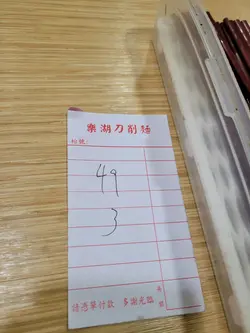 樂湖刀削麵
枱號:
49
3
月
日
請憑單付款 多謝光臨